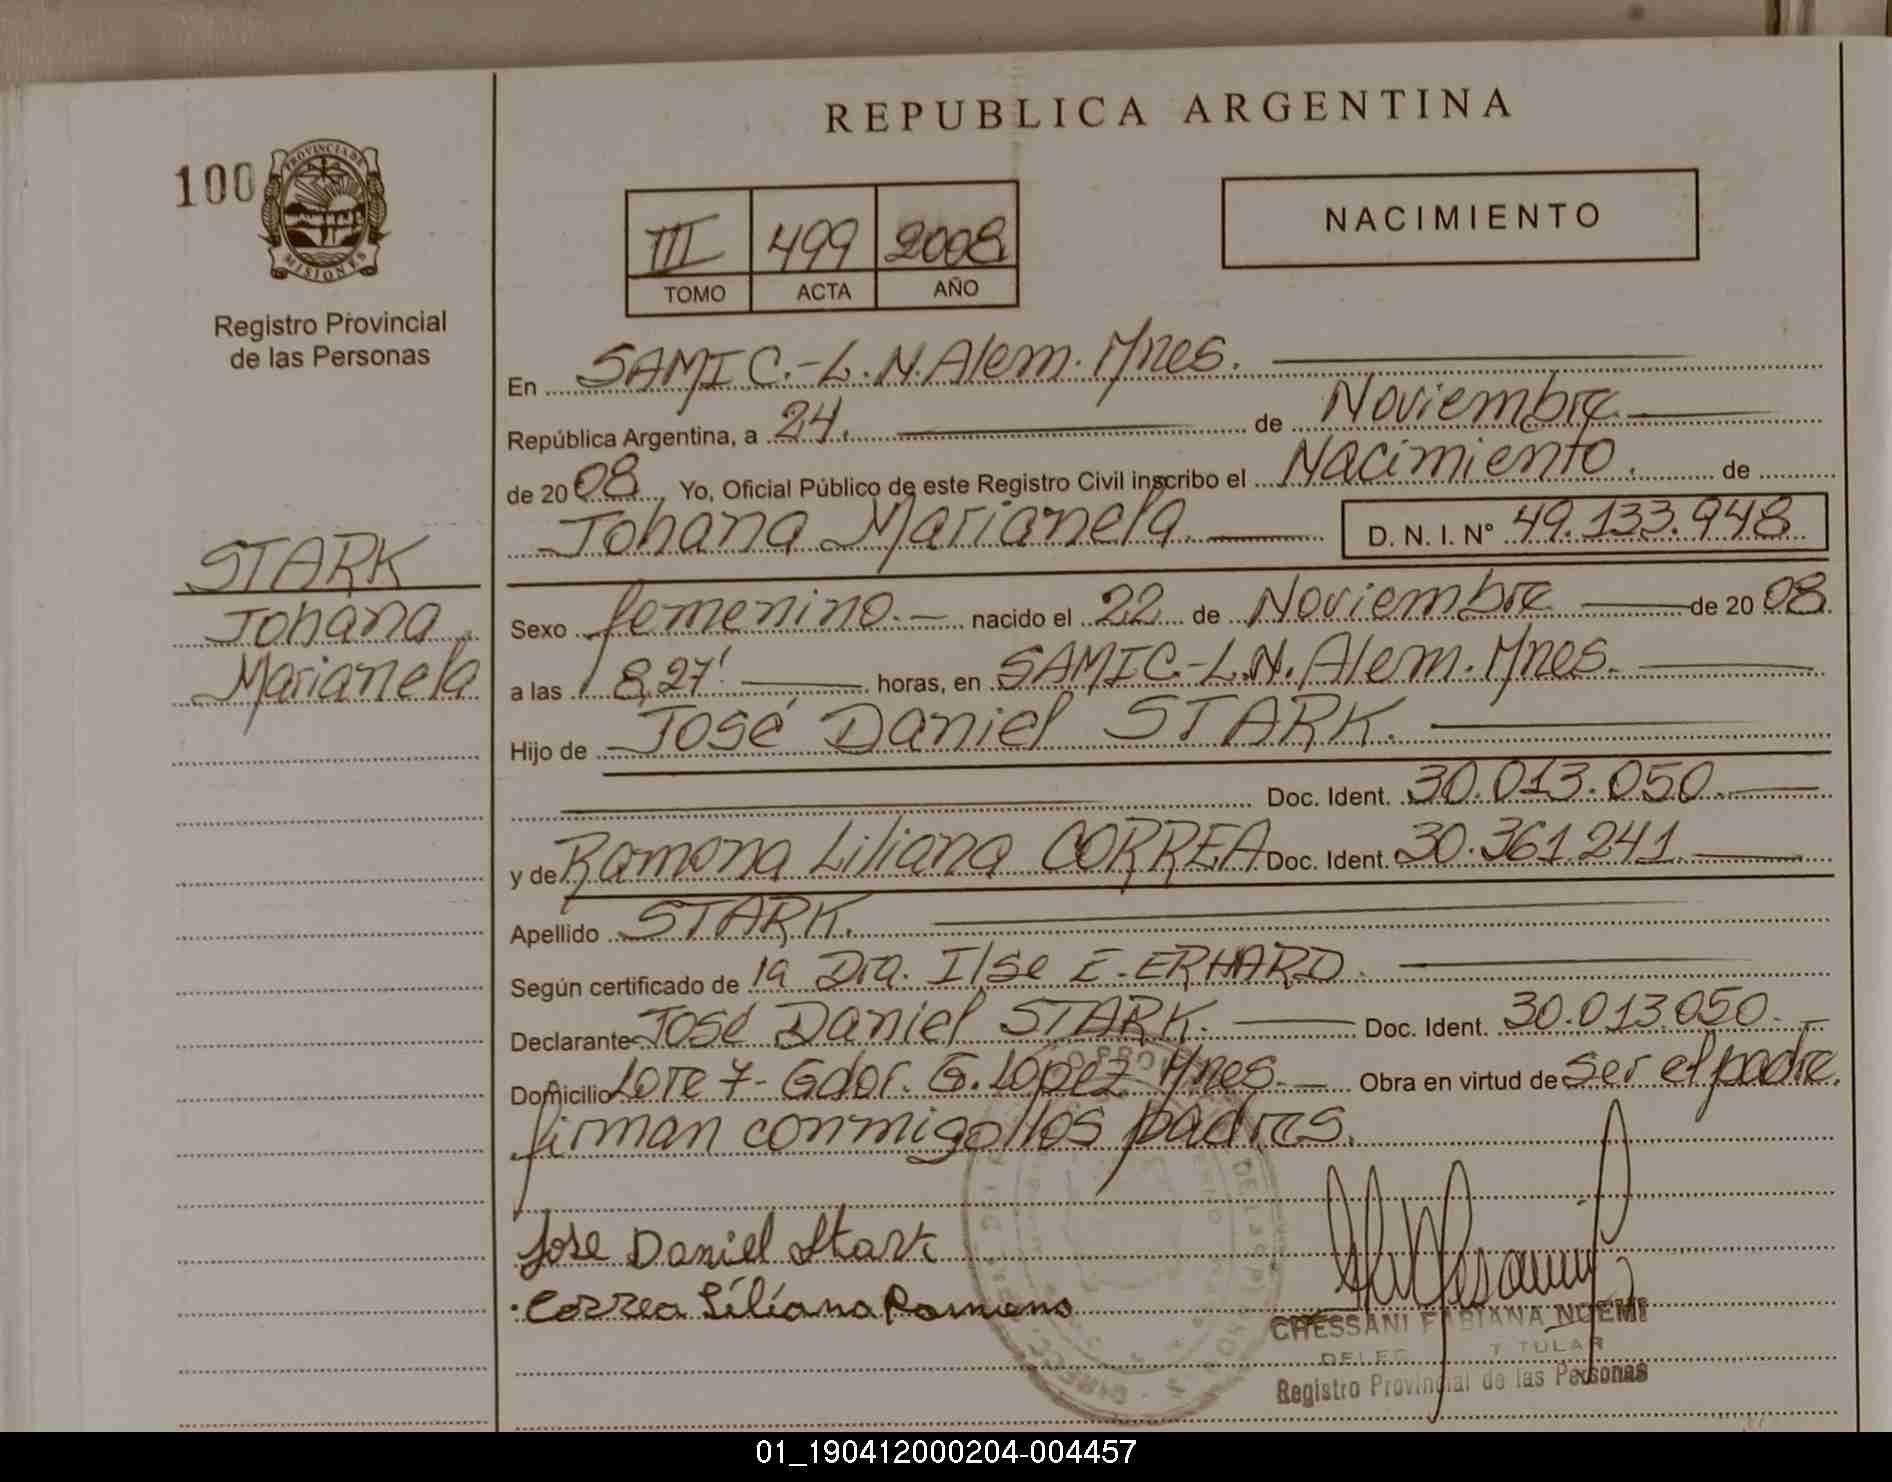 REPUBLICA ARGENTINA
100
PROVINCIA DE
MISIONES
Registro Provincial
de las Personas
III 499 2008
TOMO ACTA AÑO
NACIMIENTO
En SAMIC.-L.N.Alem.Mnes.
República Argentina, a 24. de Noviembre
de 2008, Yo, Oficial Público de este Registro Civil inscribo el Nacimiento. de
Johana Marianela. D. N. I. N° 49.133.948
STARK
Johana
Marianela
Sexo femenino.- nacido el 22 de Noviembre de 2008.
a las 8,27' horas, en SAMIC.-L.N.Alem.Mnes.
Hijo de José Daniel STARK.
Doc. Ident. 30.013.050.
y de Ramona Liliana CORREA Doc. Ident. 30.361.241.
Apellido STARK.
Según certificado de la Dra. Ilse E. ERHARD.
Declarante José Daniel STARK. Doc. Ident. 30.013.050.
Domicilio Lote 7- Gdor. G. López Mnes. Obra en virtud de ser el padre.
firman conmigo los padres.
Jose Daniel Stark
Correa Liliana Ramona
CHESSANI FABIANA NOEMI
Registro Provincial de las Personas
01_190412000204-004457